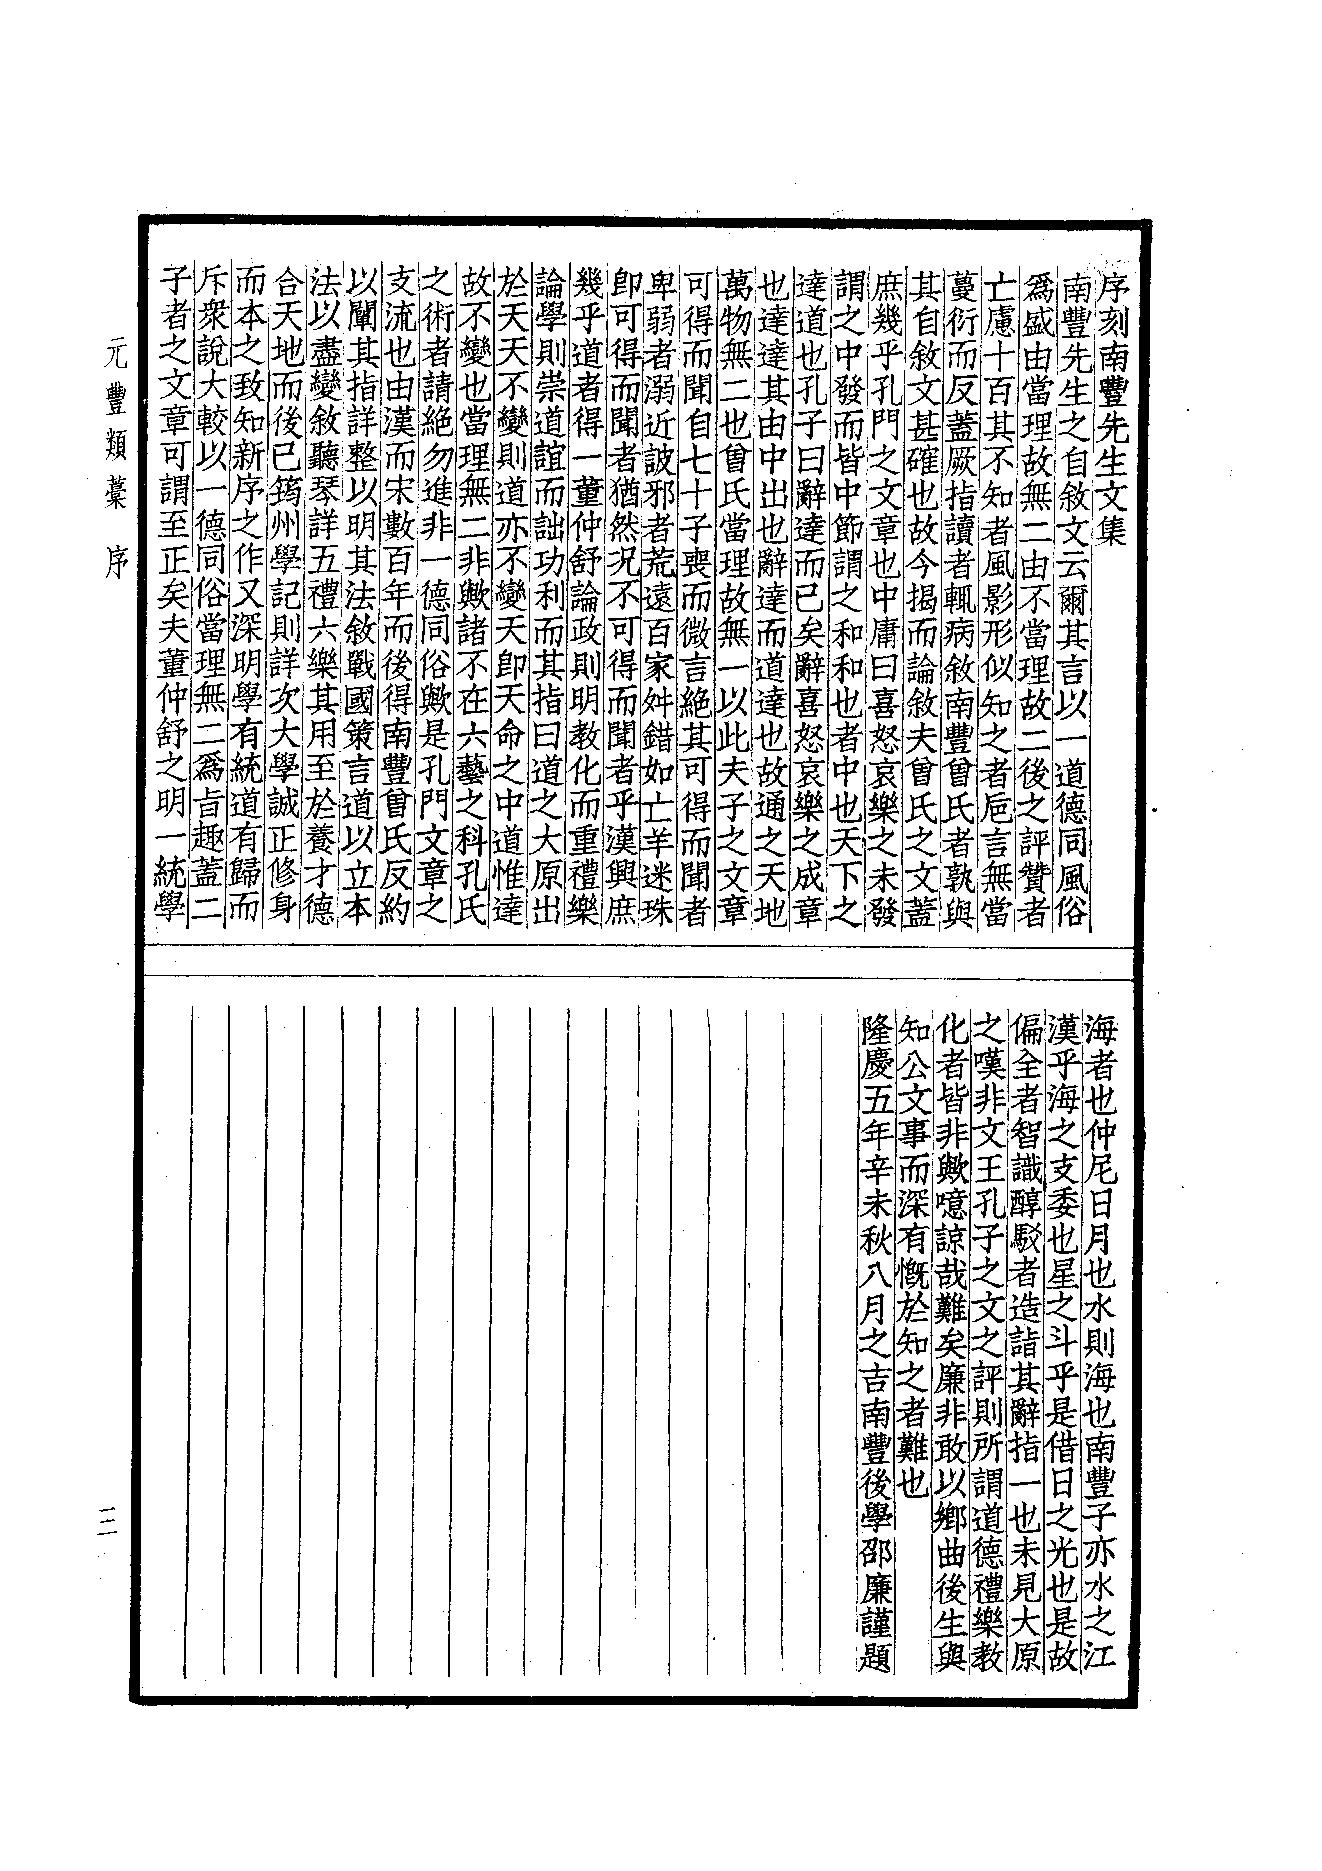 序刻南豐先生文集
南豐先生之自敘文云爾其言以一道德同風俗
爲盛由當理故無二由不當理故二後之評贊者
亡慮十百其不知者風影形似知之者巵言無當
蔓衍而反蓋厥指讀者輒病敘南豐曾氏者孰與
其自敘文甚確也故今揭而論敘夫曾氏之文蓋
庶幾乎孔門之文章也中庸曰喜怒哀樂之未發
謂之中發而皆中節謂之和和也者中也天下之
達道也孔子曰辭達而已矣辭喜怒哀樂之成章
也達達其由中出也辭達而道達也故通之天地
萬物無二也曾氏當理故無一以此夫子之文章
可得而聞自七十子喪而微言絕其可得而聞者
卑弱者溺近詖邪者荒遠百家舛錯如亡羊迷珠
卽可得而聞者猶然况不可得而聞者乎漢興庶
幾乎道者得一董仲舒論政則明教化而重禮樂
論學則崇道誼而詘功利而其指曰道之大原出
於天天不變則道亦不變天卽天命之中道惟達
故不變也當理無二非歟諸不在六藝之科孔氏
之術者請絕勿進非一德同俗歟是孔門文章之
支流也由漢而宋數百年而後得南豐曾氏反約
以闡其指詳整以明其法敘戰國策言道以立本
法以盡變敘聽琴詳五禮六樂其用至於養才德
合天地而後已筠州學記則詳次大學誠正修身
而本之致知新序之作又深明學有統道有歸而
斥衆說大較以一德同俗當理無二爲旨趣蓋二
子者之文章可謂至正矣夫董仲舒之明一統學
海者也仲尼日月也水則海也南豐子亦水之江
漢乎海之支委也星之斗乎是借日之光也是故
偏全者智識醇駁者造詣其辭指一也未見大原
之嘆非文王孔子之文之評則所謂道德禮樂教
化者皆非歟噫諒哉難矣廉非敢以鄉曲後生與
知公文事而深有慨於知之者難也
隆慶五年辛未秋八月之吉南豐後學邵廉謹題
元豐類藁 序
三